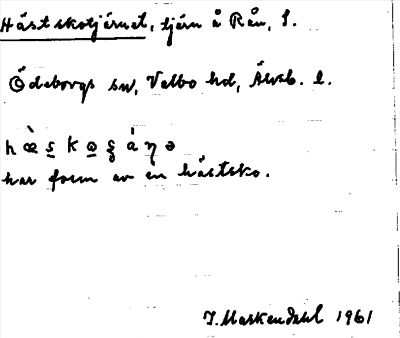 Hästskotjärnet, tjärn å Rån, S.
Ödeborgs sn, Valbo hd, Älvsb. l.
h æ̀ s̲ k o̲ ʂ á η ə
har form av en hästsko.
J. Maskendahl 1961